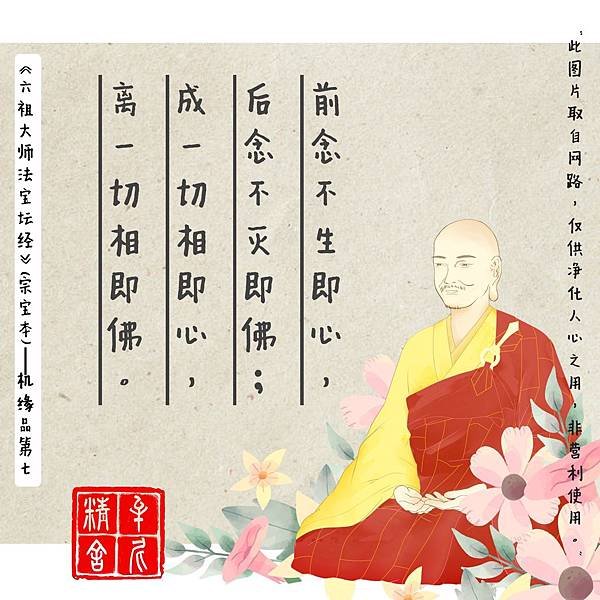 此图片取自网路，仅供净化人心之用，非营利使用。
前念不生即心，
后念不灭即佛；
成一切相即心，
离一切相即佛。
《六祖大师法宝坛经》(宗宝本)——机缘品第七
精舍